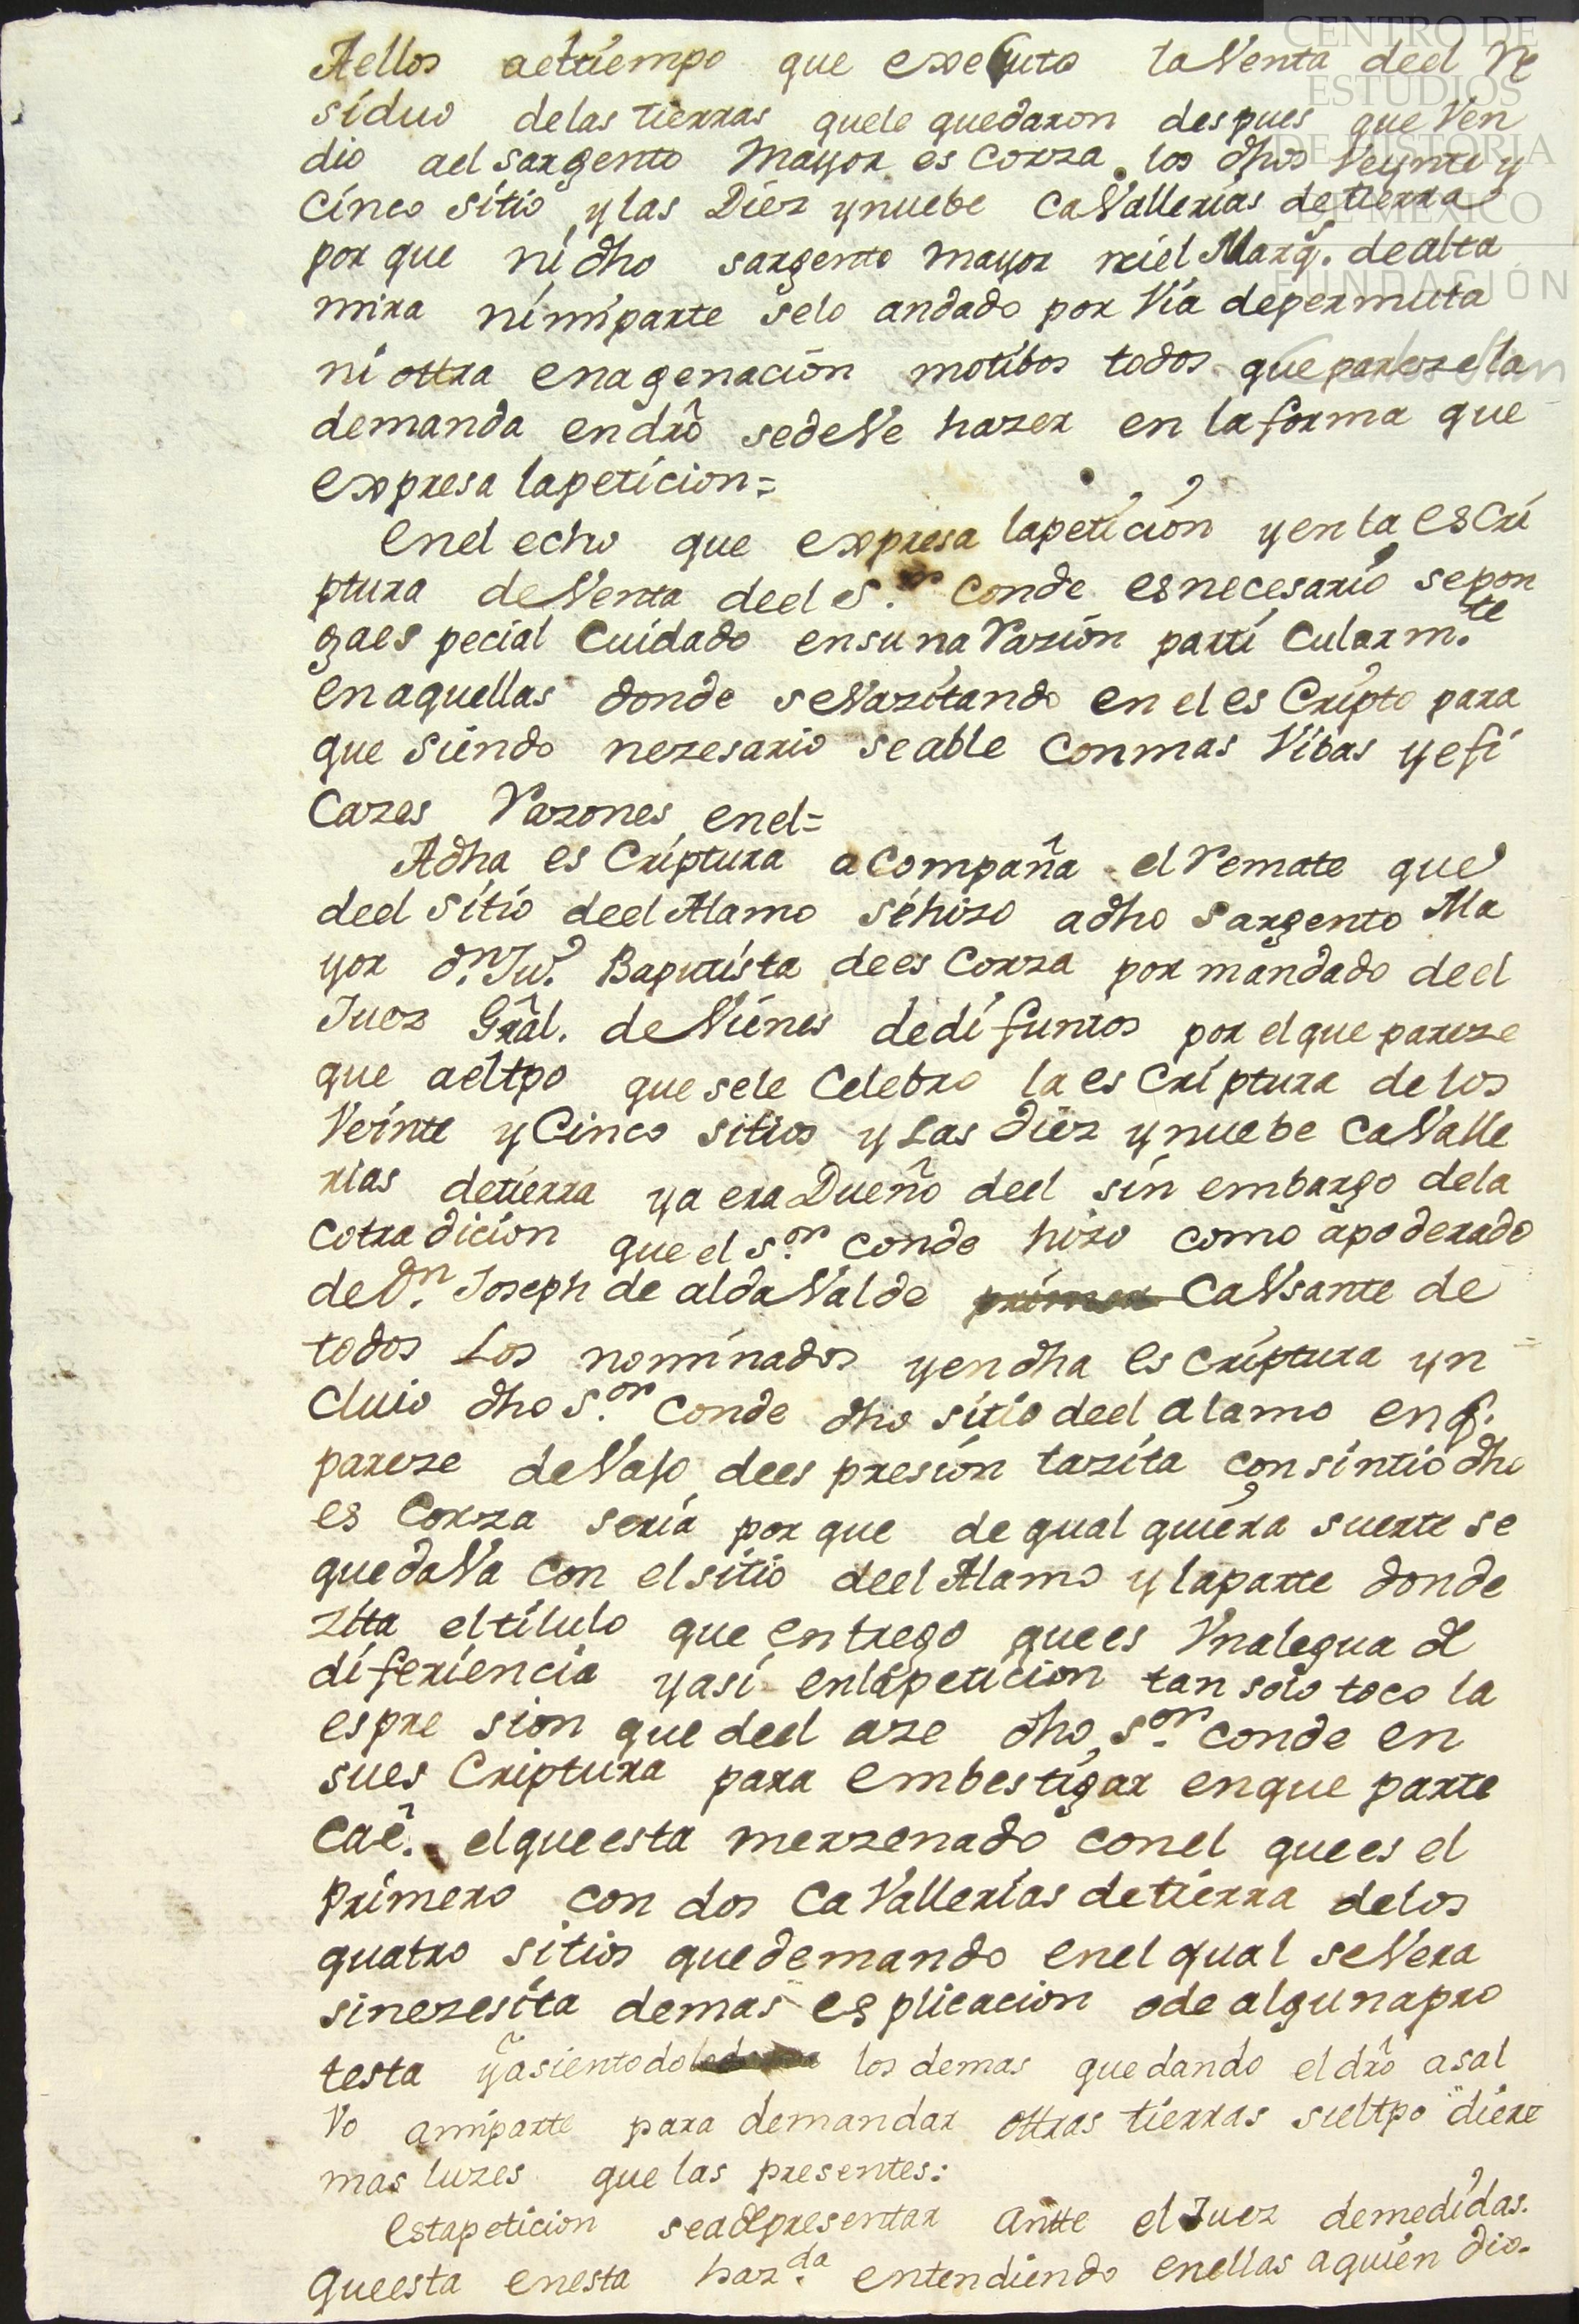 CENTRO DE
ESTUDIOS
DE HISTORIA
DE MEXICO
FUNDACIÓN
Aellos aeltiempo que executo laVenta deel Re
siduo delas tierras quele quedaron despues que Ven
dio ael sargento Mayor es Corza los dhos Veynte y
Cinco sitio y las Diez ynuebe CaVallerias detierra
por que ni dho sargento mayor niel Marq.s dealta
mira nimiparte selo andado por Via depermuta
ni ottra enagenación motibos todos que pareze la
demanda endrô sedeVe hazer en laforma que
expresa lapeticion=
enel echo que expresa lapetición yen la esCri
ptura deVenta deel S.or Conde esnecesario sepon
gaes pecial Cuidado ensuna Razión parti Cularm.te
enaquellas donde seVazitando en el es Cripto para
que siendo nezesario seable Conmas Vibas yefi
Cazes Razones enel=
Adha es Criptura acompaña el Remate que
deel sitio deel Alamo sehizo adho sargento Ma
yor D.n Ju.o Baptista dees Corza por mandado deel
Juez Grâl. deVienes dedifuntos por elque pareze
que aeltpo que sele Celebro la es Criptura de los
Veinte y Cinco sitios y Las Diez ynuebe CaValle
rias detierra ya era Dueño deel sin embargo dela
Cotradicion que el s.or Conde hizo como apoderado
de D.n Joseph de aldaValde primer CaVsante de
todos Los nominados yendha esCriptura yn
Cluio dho S.or Conde dho sitio deel alamo enq.
pareze deVajo dees presión tazita consintió dho
es Corza seria por que de qual quiera suerte se
quedaVa Con elsitio deel Alamo ylaparte donde
zita eltitulo que entrego quees Vnalegua de
diferiencia yasi enlapeticion tan solo toco la
espre sion que deel aze dho S.or Conde en
sues Criptura para embestigar enque parte
Caê. elqueesta merzenado conel quees el
Primero con dos CaVallerias detierra delos
quatro sitios quedemando enel qual seVera
sinezesita demas esplicacion ode algunapro
testa los demas quedando eldrô asal
Vo amiparte para demandar ottras tierras sieltpo diere
mas luzes que las presentes:
estapeticion seadepresentar antte elJuez demedidas.
queesta enesta haz.da entendiendo enellas aquien dio-